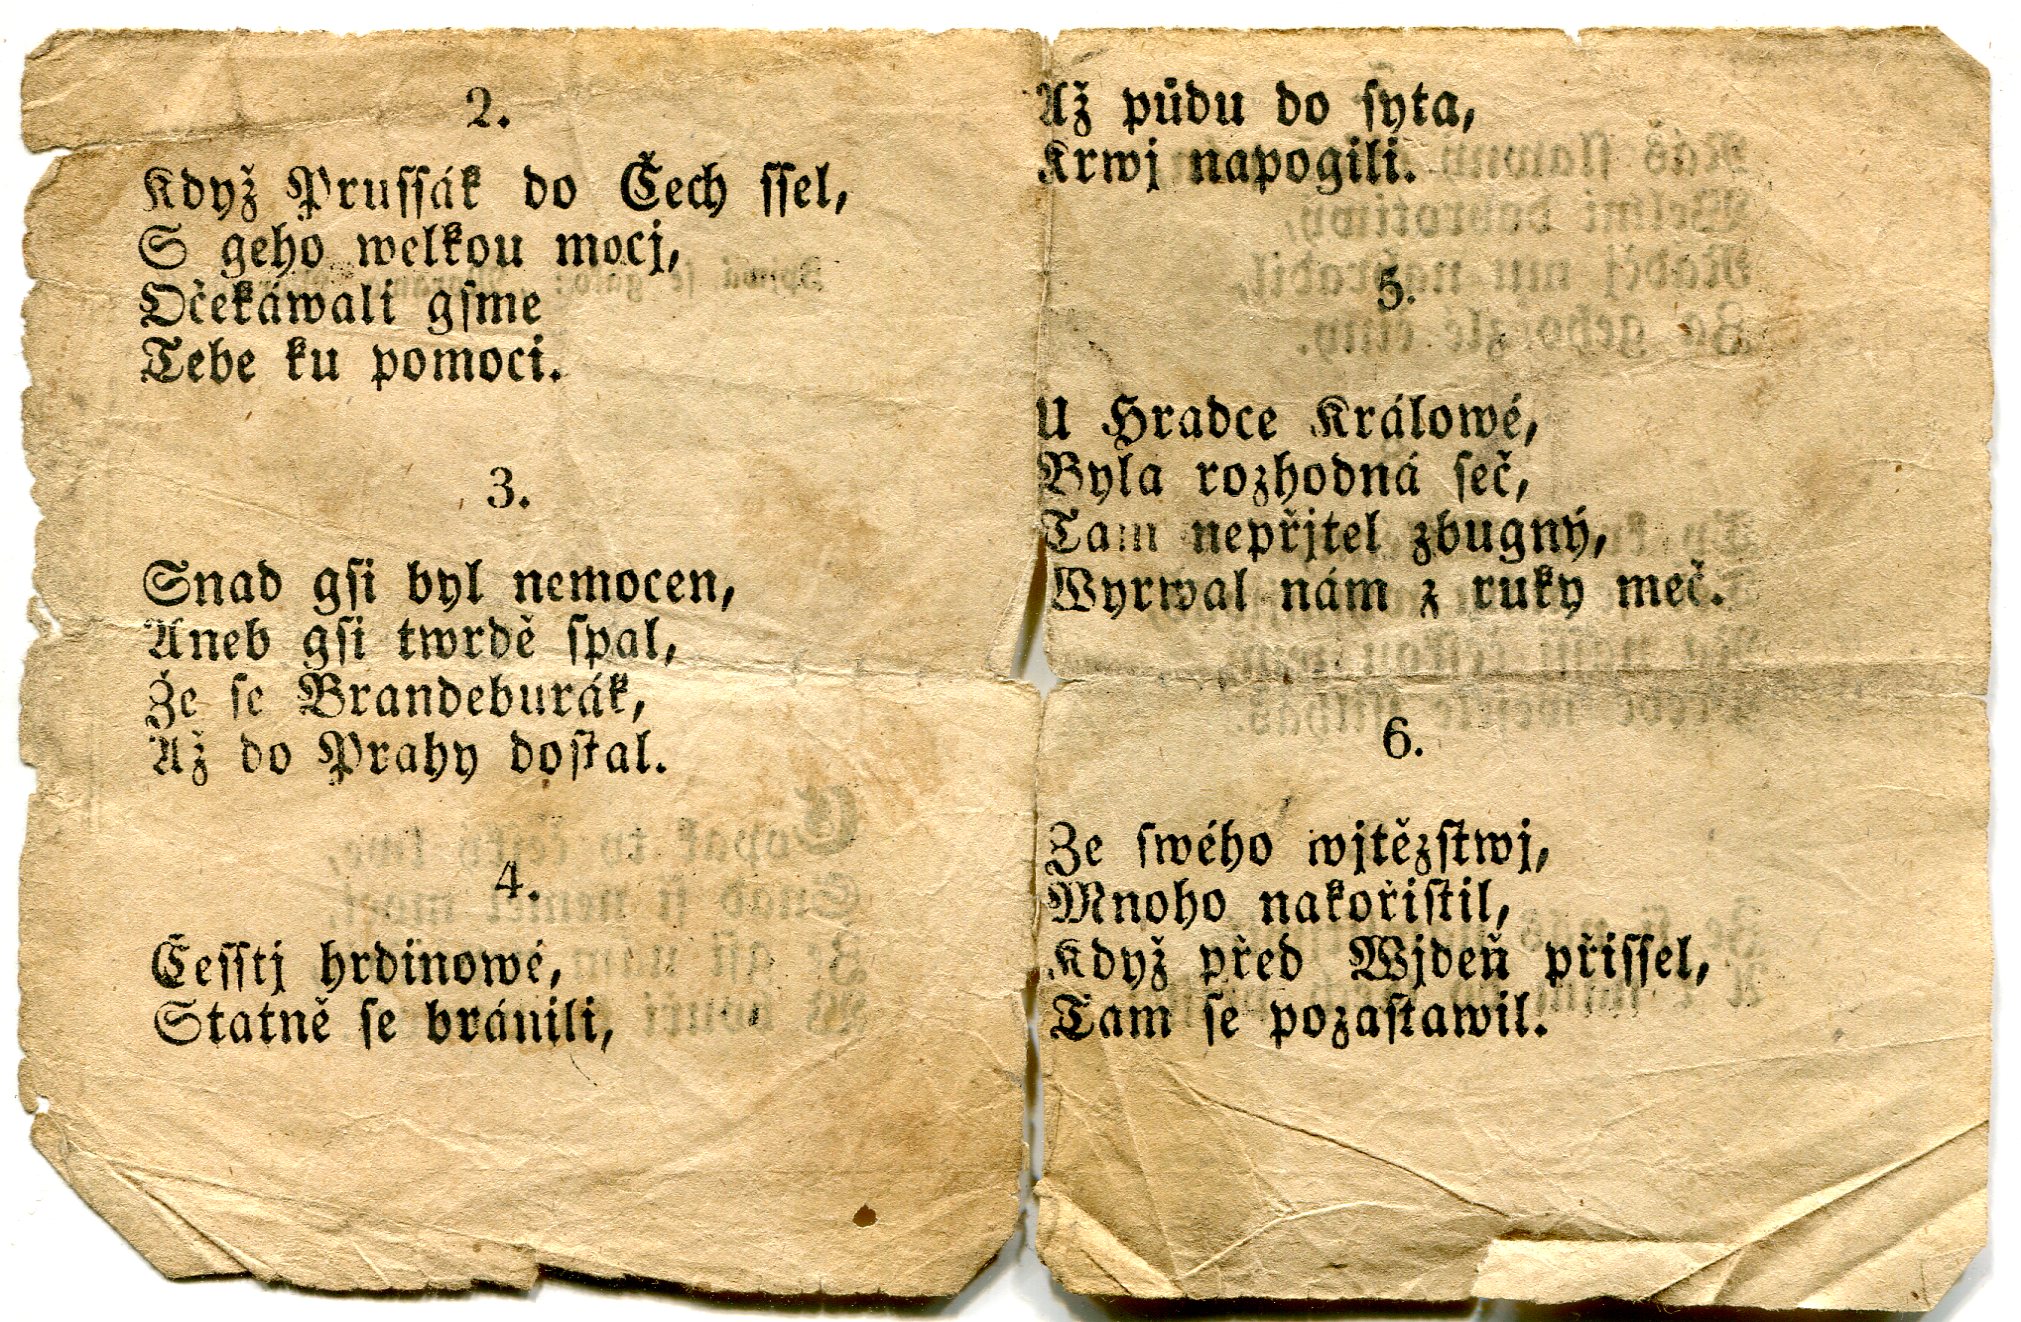 2.
Když Prussák do Čech ssel,
S geho welkou mocj,
Očekáwali gsme
Tebe ku pomoci.
3.
Snad gsi byl nemocen,
Aneb gsi twrdě spal,
Že se Brandeburák,
Až do Prahy dostal.
4.
Čessti hrdinowé,
Statně se bránili,
Až půdu do syta,
Krwj napogili.
5.
U Hradce Králowé,
Byla rozhodná seč,
Tam nepřjtel zbugný,
Wyrwal nám z ruky meč.
6.
Ze swého wjtězstwj,
Mnoho nakořistil,
Když před Wjdeň přissel,
Tam se pozastawil.